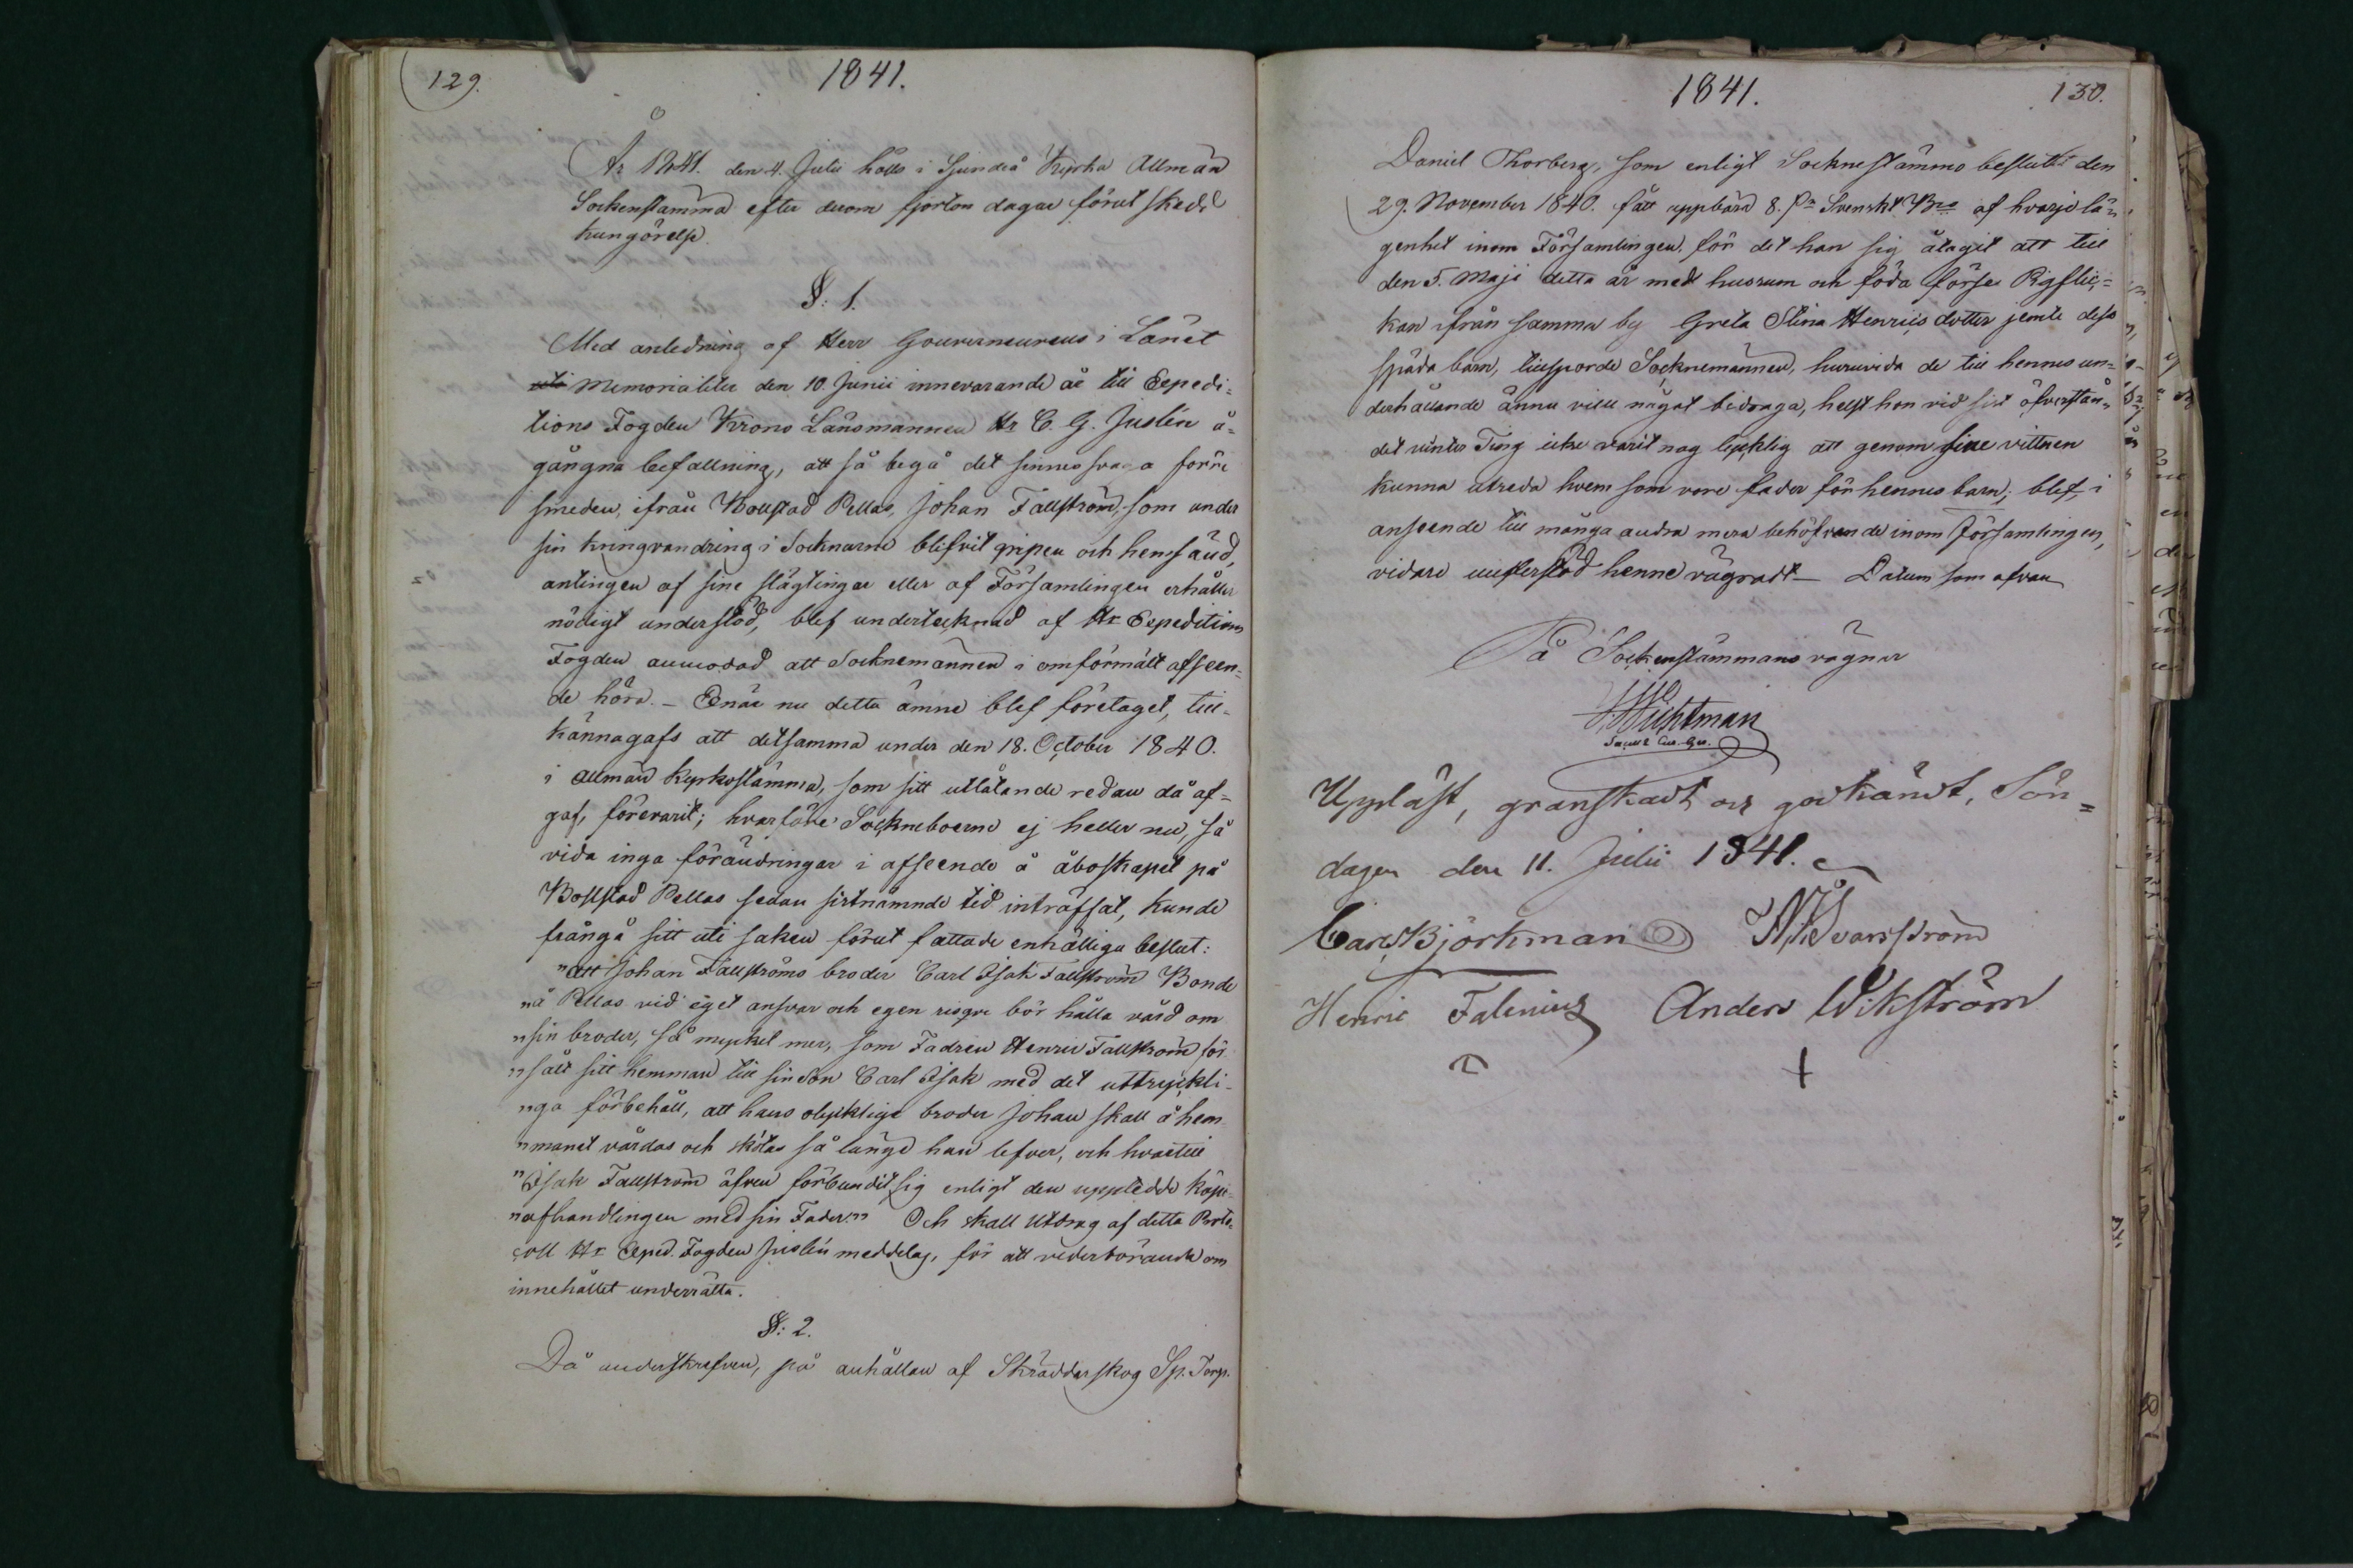 129.
1841.
År 1841. den 4. Julii hölls i Sjundeå Kyrka Allmän
Sockenstämma efter derom fjorton dagar förut skedd
kungörelse.
§: 1.
Med anledning af Herr Gouverneurens i Länet
Memorialiter den 10. Junii innevarande år till Expedi-
tions Fogden Krono Länsmannen Hr C. G. Juslén å-
gångna befallning, att så begå det sinnessvaga förre
smeden, ifrån Bollstad Pellas, Johan Fällström, som under
sin kringvandring i Socknarne blifvit gripen och hemsänd,
antingen af sine slägtingar eller af Församlingen erhåller
nödigt understöd, blef undertecknad af Hr Expeditions
Fogden anmodad att Socknemännen i omförmält afseen-
de höra. - Enär nu detta ämne blef företaget, till-
kännagafs att detsamma under den 18. October 1840.
i allmän Kyrkostämma, som sitt utlåtande redan då af-
gaf, förevarit; hvarföre Sockneboerne ej heller nu, så
vida inga förändringar i afseende å åboskapet på
Bollstad Pellas sedan sistnämnde tid inträffat, kunde
frångå sitt uti saken förut fattade enhälliga beslut:
"att Johan Fällströms broder Carl Isak Fällström Bonde
"å Pellas vid eget ansvar och egen risque bör hålla vård om
"sin broder, så myket mer, som Fadren Henric Fällström för
"sålt sitt hemman till sin son Carl Isak med det uttryckli-
"ga förbehåll, att hans olyklige broder Johan skall å hem
"manet vårdas och skötas så länge han lefver, och hvartill
"Isak Fällström äfven förbundit sig enligt den uppledde köpe
"afhandlingen med sin Fader."" Och skall Utdrag af detta Proto-
coll Hr Exped. Fogden Juslén meddelas, för att vederbörande om
innehållet underrätta.
§: 2.
Då underskrefven, på anhållan af Skräddarskog Sp. Torp.
1841.
130.
Daniel Thorberg, som enligt Sockneslämmo beslutet den
29. November 1840. fått uppbära 8. Svenskt Bco af hvarje lä-
genhet inom Församlingen för det han sig åtagit att till
den 5. Maji detta år med husrum och föda förse Pigflic-
kan ifrån samma by Greta Stina Henricsdotter jemte dess
späda barn, tillsporde Socknemännen, huruvida de till hennes un-
derhållande ännu ville något bidraga, helst hon vid sist öfverstån-
det vinter Ting icke varit nog lycklig att genom sine vittnen
kunna utreda hvem som vore fader för hennes barn; blef, i
anseende till många andra mera behöfvande inom Församlingen,
vidare understöd henne vägradt - Datum som ofvan
På Sockenstämmans vägnar
Wichtman
Uppläst, granskadt och godkändt, Sön-
dagen den 11. Julii 1841.
Carl Björkman
Henric Falenius Anders Wikström